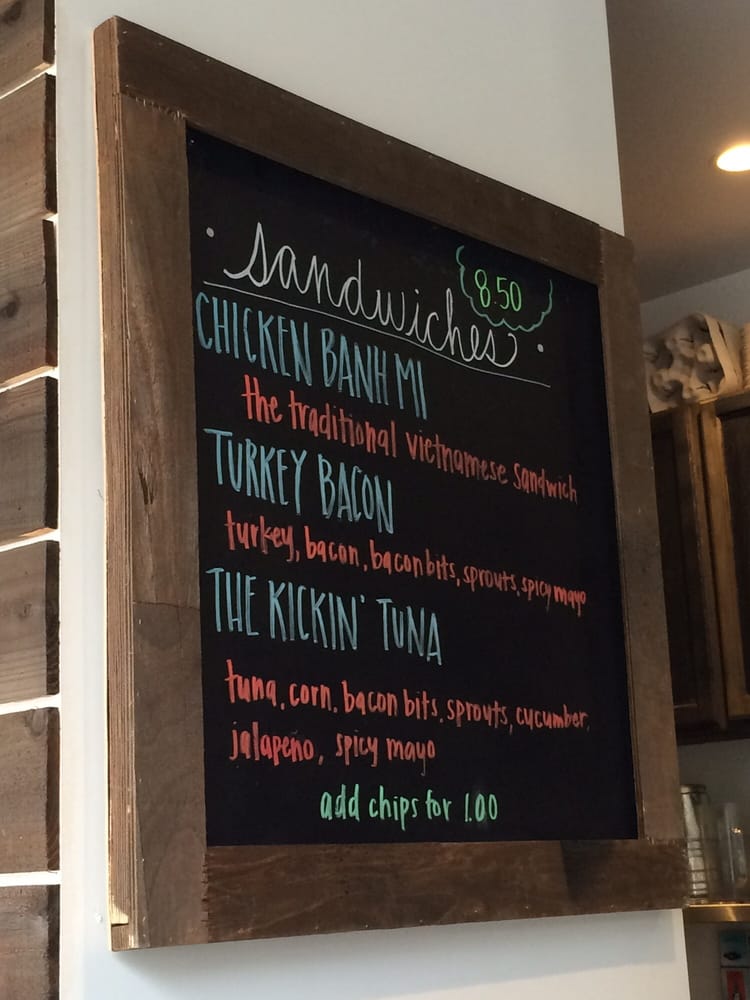 sandwiches 8.50
CHICKEN BANH MI
the traditional vietnamese sandwich
TURKEY BACON
turkey, bacon, bacon bits, sprouts, spicy mayo
THE KICKIN' TUNA
tuna, corn, bacon bits, sprouts, cucumber,
jalapeño, spicy mayo
add chips for 1.00